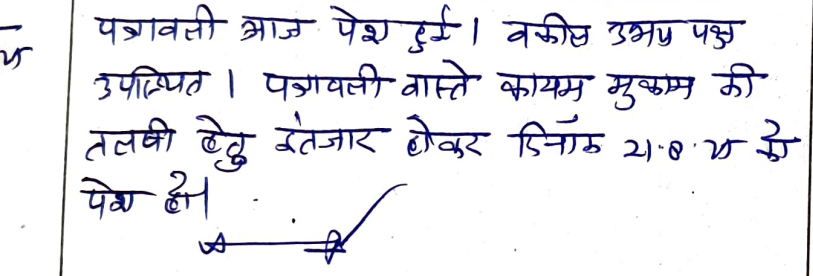 पत्रावली आज पेश हुई। वकील उभय पक्ष
उपस्थित। पत्रावली वास्ते कायम मुकाम की
तलबी हेतु इंतजार होकर दिनांक 21.8.25 को
पेश हो।